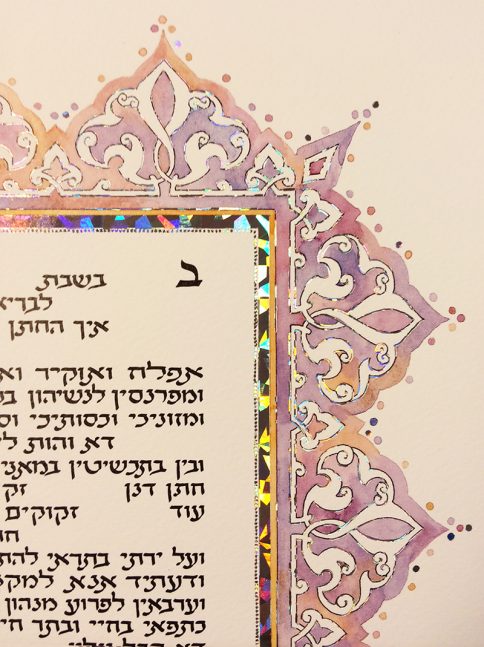 ב בשבת
לבריא
איך החתן
אפלח ואוקיר וא
ומפרנסין לנשיהון ב
ומזוניכי וכסותיכי וס
דא והות לי
ובין בתכשיטין במאני
חתן דנן זק
עוד זקוקים
ועל ירתי בתראי להת
ודעתיד אנא למק
וערבאין לפרוע מנהון
כתפאי בחיי ובתר חיי